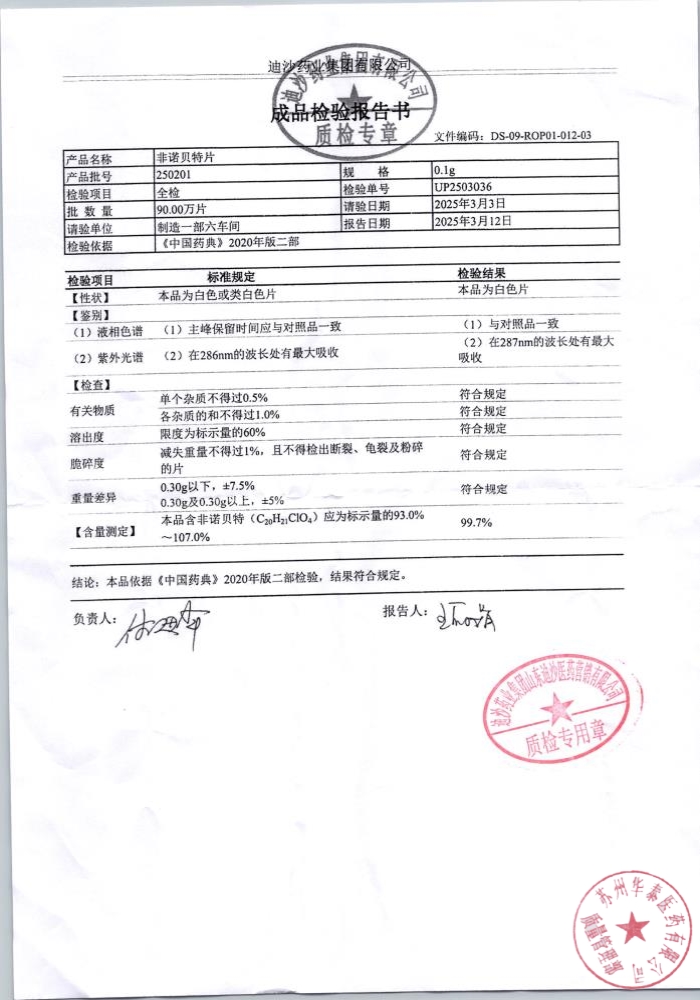 迪沙药业集团有限公司
成品检验报告书
质检专章
文件编码：DS-09-ROP01-012-03
产品名称 非诺贝特片
产品批号 250201 规 格 0.1g
检验项目 全检 检验单号 UP2503036
批 数 量 90.00万片 请验日期 2025年3月3日
请验单位 制造一部六车间 报告日期 2025年3月12日
检验依据 《中国药典》2020年版二部
检验项目 标准规定 检验结果
【性状】 本品为白色或类白色片 本品为白色片
【鉴别】
（1）液相色谱 （1）主峰保留时间应与对照品一致 （1）与对照品一致
（2）紫外光谱 （2）在286nm的波长处有最大吸收 （2）在287nm的波长处有最大
吸收
【检查】
有关物质 单个杂质不得过0.5% 符合规定
各杂质的和不得过1.0% 符合规定
溶出度 限度为标示量的60% 符合规定
脆碎度 减失重量不得过1%，且不得检出断裂、龟裂及粉碎 符合规定
的片
重量差异 0.30g以下，±7.5% 符合规定
0.30g及0.30g以上，±5%
【含量测定】 本品含非诺贝特（C₂₀H₂₁ClO₄）应为标示量的93.0% 99.7%
～107.0%
结论：本品依据《中国药典》2020年版二部检验，结果符合规定。
负责人： 报告人：
迪沙药业集团山东迪沙医药营销有限公司
质检专用章
苏州华泰医药有限公司